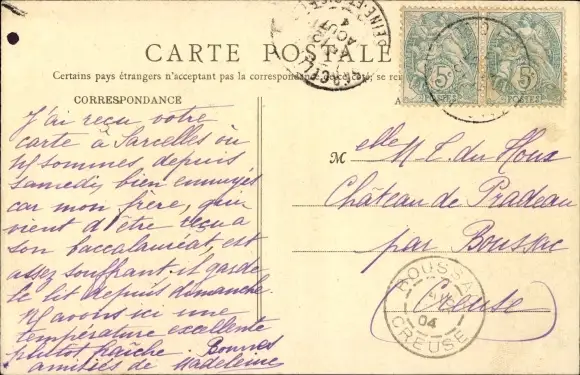 CARTE POSTALE
Certains pays étrangers n'acceptant pas la correspondance au
CORRESPONDANCE
J'ai reçu votre
carte à Sarcelles où
ns sommes depuis
samedi, bien ennuyés
car mon frère, qui
vient d'être reçu a
son baccalauréat est
assez souffrant. il garde
le lit depuis dimanche.
Ns avons ici une
température excellente
plutôt fraîche. Bonnes
amitiés de Madeleine
Melle M. L. du Houx
Château de Pradeau
par Boussac
Creuse
5c 5c
POSTES POSTES
4
AOUT
BOUSSAC
04
CREUSE